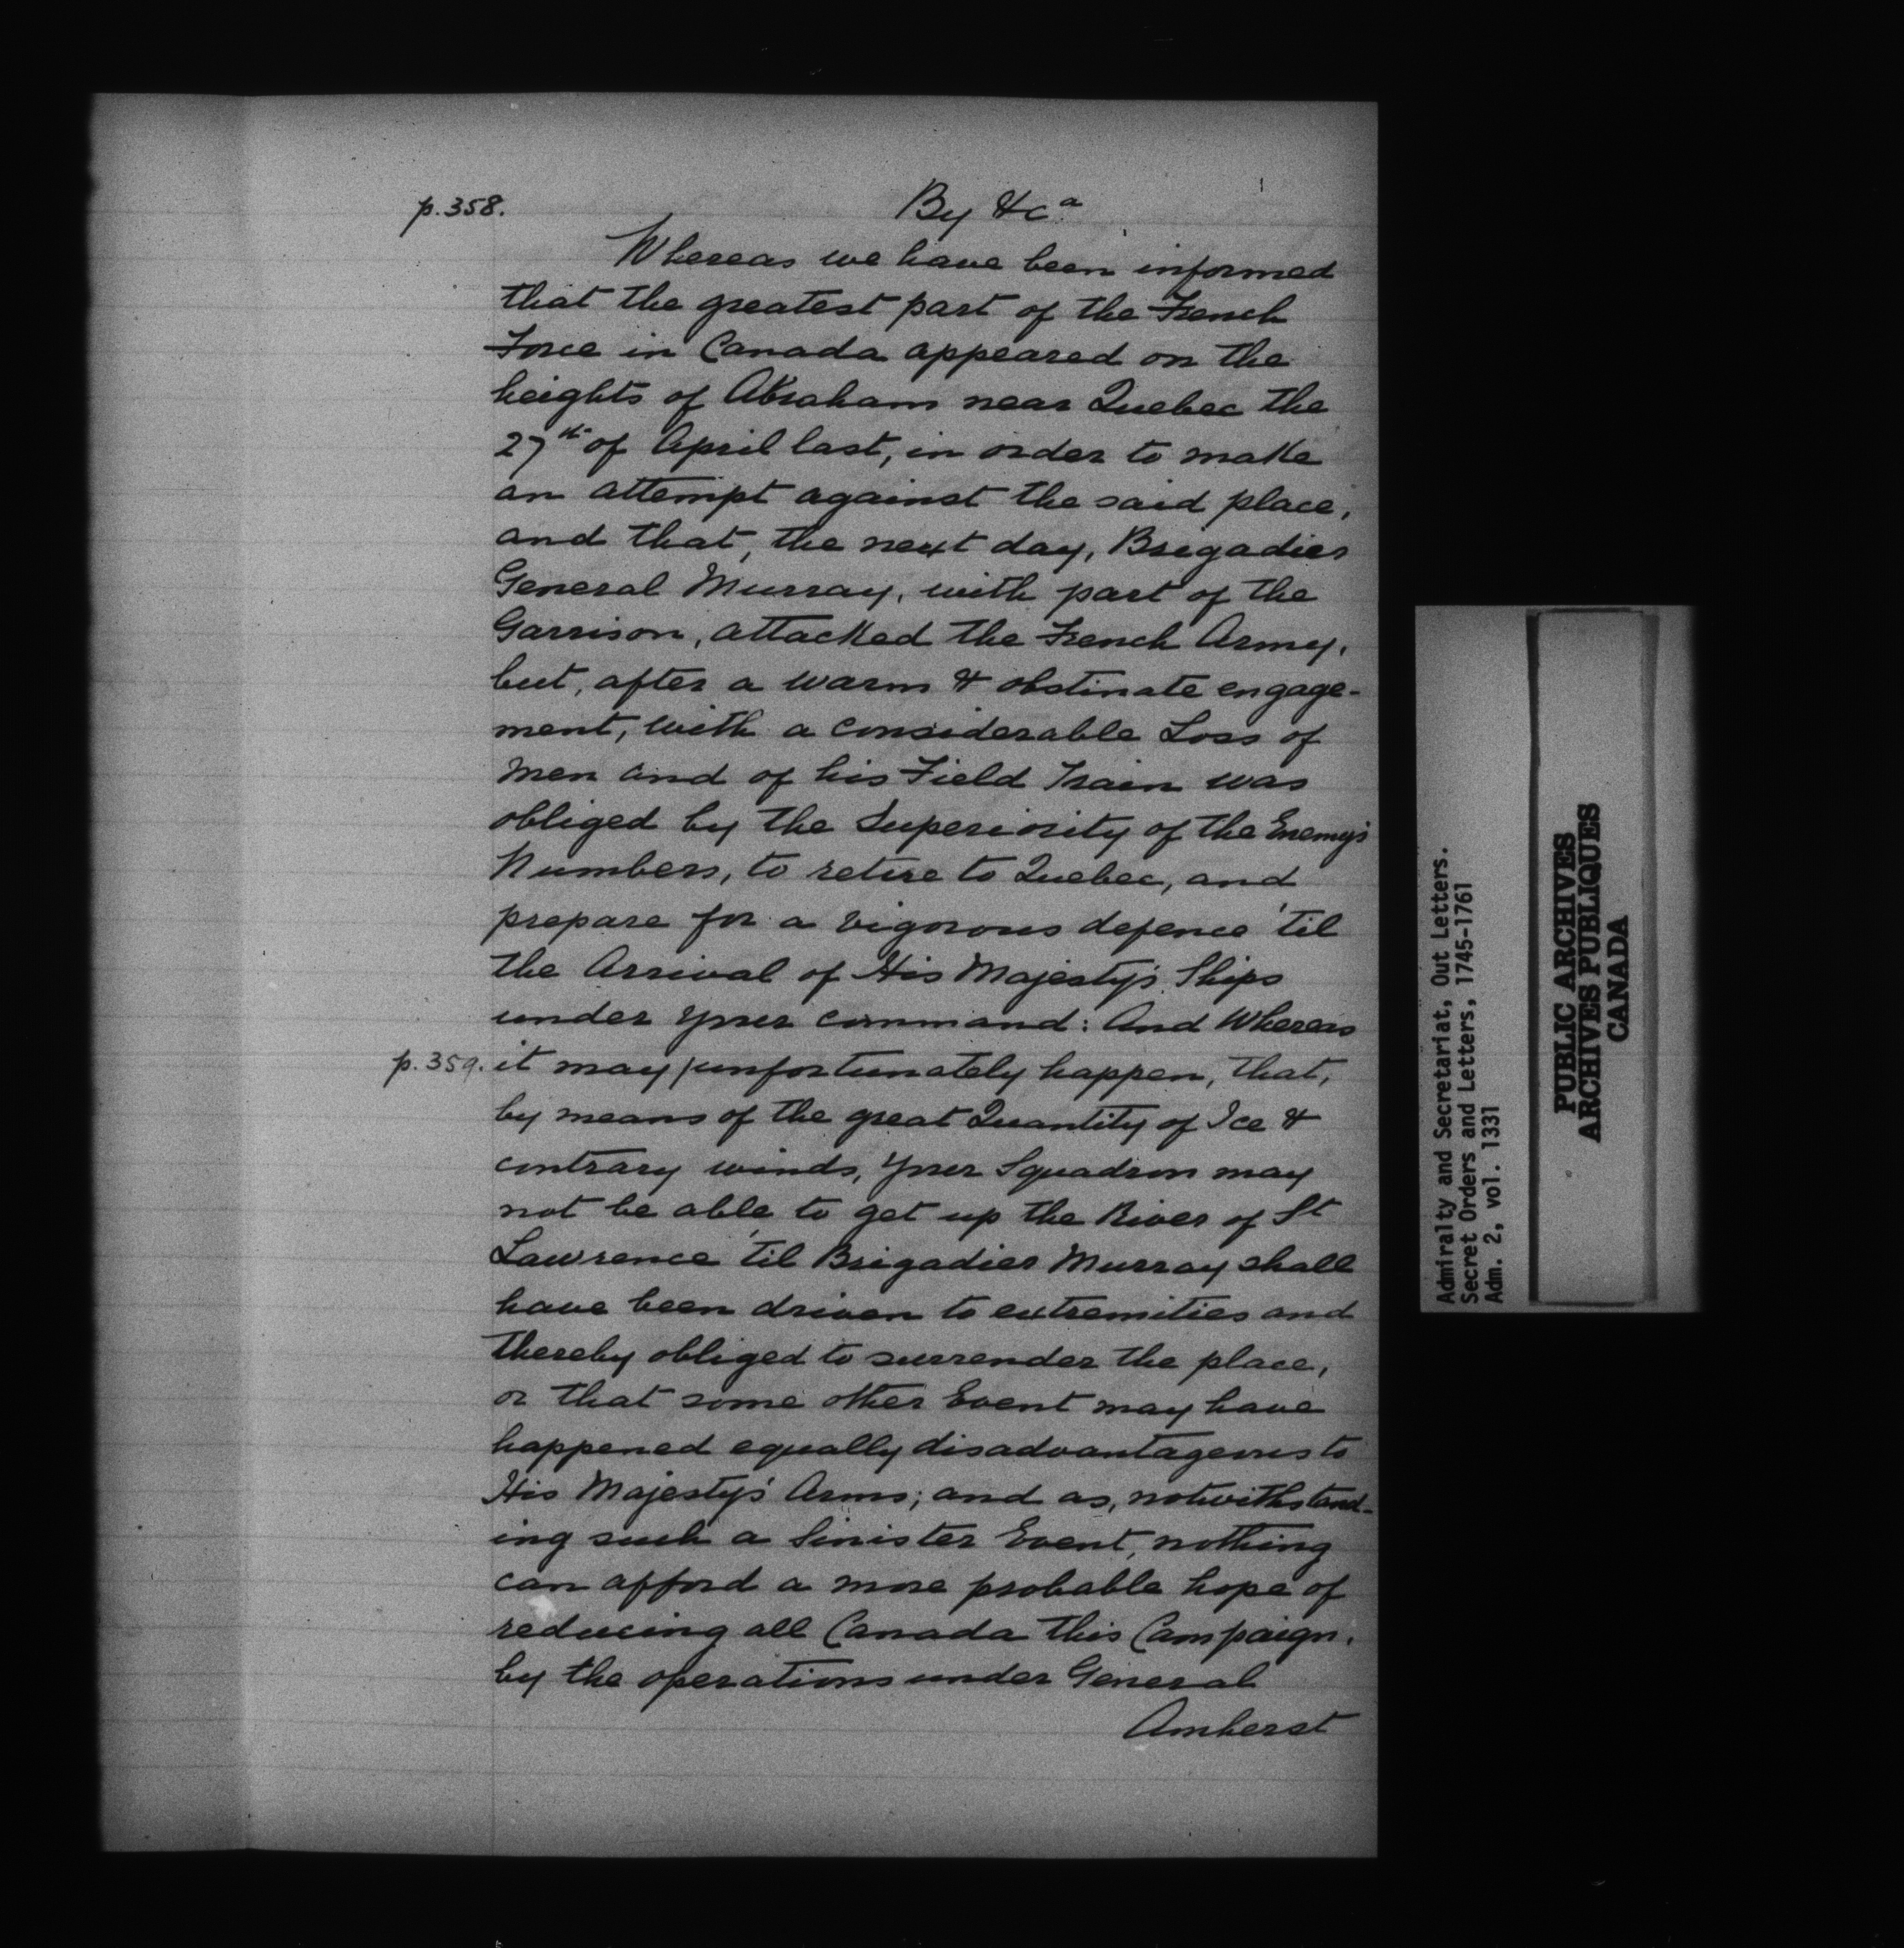 p. 358. By &ca
Whereas we have been informed
that the greatest part of the French
Force in Canada appeared on the
heights of Abraham near Quebec the
27th of April last, in order to make
an attempt against the said place,
and that, the next day, Brigadier
General Murray, with part of the
Garrison, attacked the French Army,
but, after a warm & obstinate engage-
ment, with a considerable Loss of
Men and of his Field Train was
obliged by the Superiority of the Enemy's
Numbers, to retire to Quebec, and
prepare for a vigorous defence 'til
the Arrival of His Majesty's Ships
under your command: And Whereas
p. 359. it may / unfortunately happen, that,
by means of the great Quantity of Ice &
contrary winds, your Squadron may
not be able to get up the River of St
Lawrence 'til Brigadier Murray shall
have been driven to extremities and
thereby obliged to surrender the place,
or that some other Event may have
happened equally disadvantageous to
His Majesty's Arms; and as, notwithstand-
ing such a Sinister Event, nothing
can afford a more probable hope of
reducing all Canada this Campaign,
by the operations under General
Amherst
Admiralty and Secretariat, Out Letters.
Secret Orders and Letters, 1745-1761
Adm. 2, vol. 1331
PUBLIC ARCHIVES
ARCHIVES PUBLIQUES
CANADA